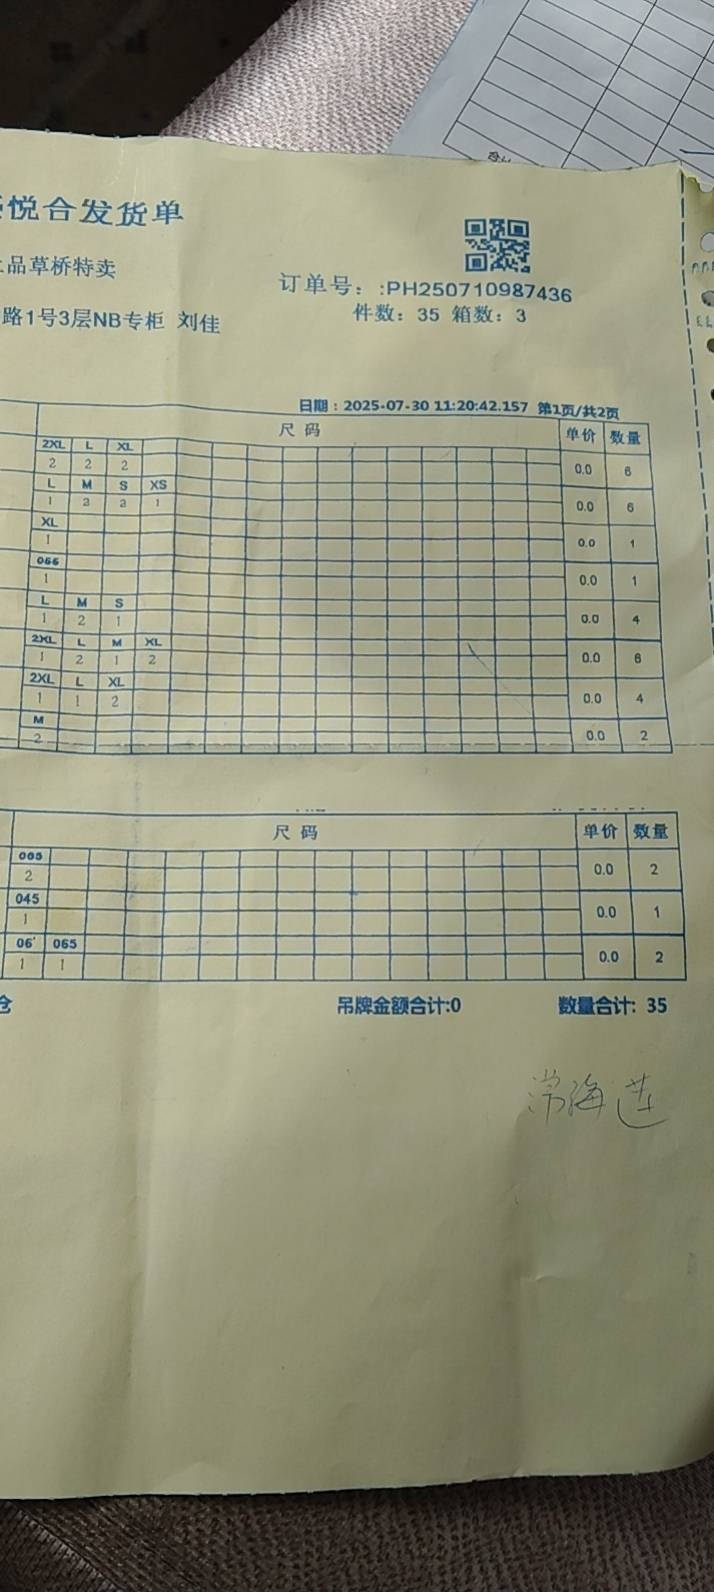 悦合发货单
品草桥特卖
订单号：:PH250710987436
路1号3层NB专柜 刘佳
件数：35 箱数：3
日期：2025-07-30 11:20:42.157 第1页/共2页
尺码 单价 数量
2XL L XL
2 2 2 0.0 6
L M S XS
1 2 2 1 0.0 6
XL
1 0.0 1
066
1 0.0 1
L M S
1 2 1 0.0 4
2XL L M XL
1 2 1 2 0.0 6
2XL L XL
1 1 2 0.0 4
M
2 0.0 2
尺码 单价 数量
065
2 0.0 2
045
1 0.0 1
06' 065
1 1 0.0 2
仓 吊牌金额合计:0 数量合计: 35
常海莲